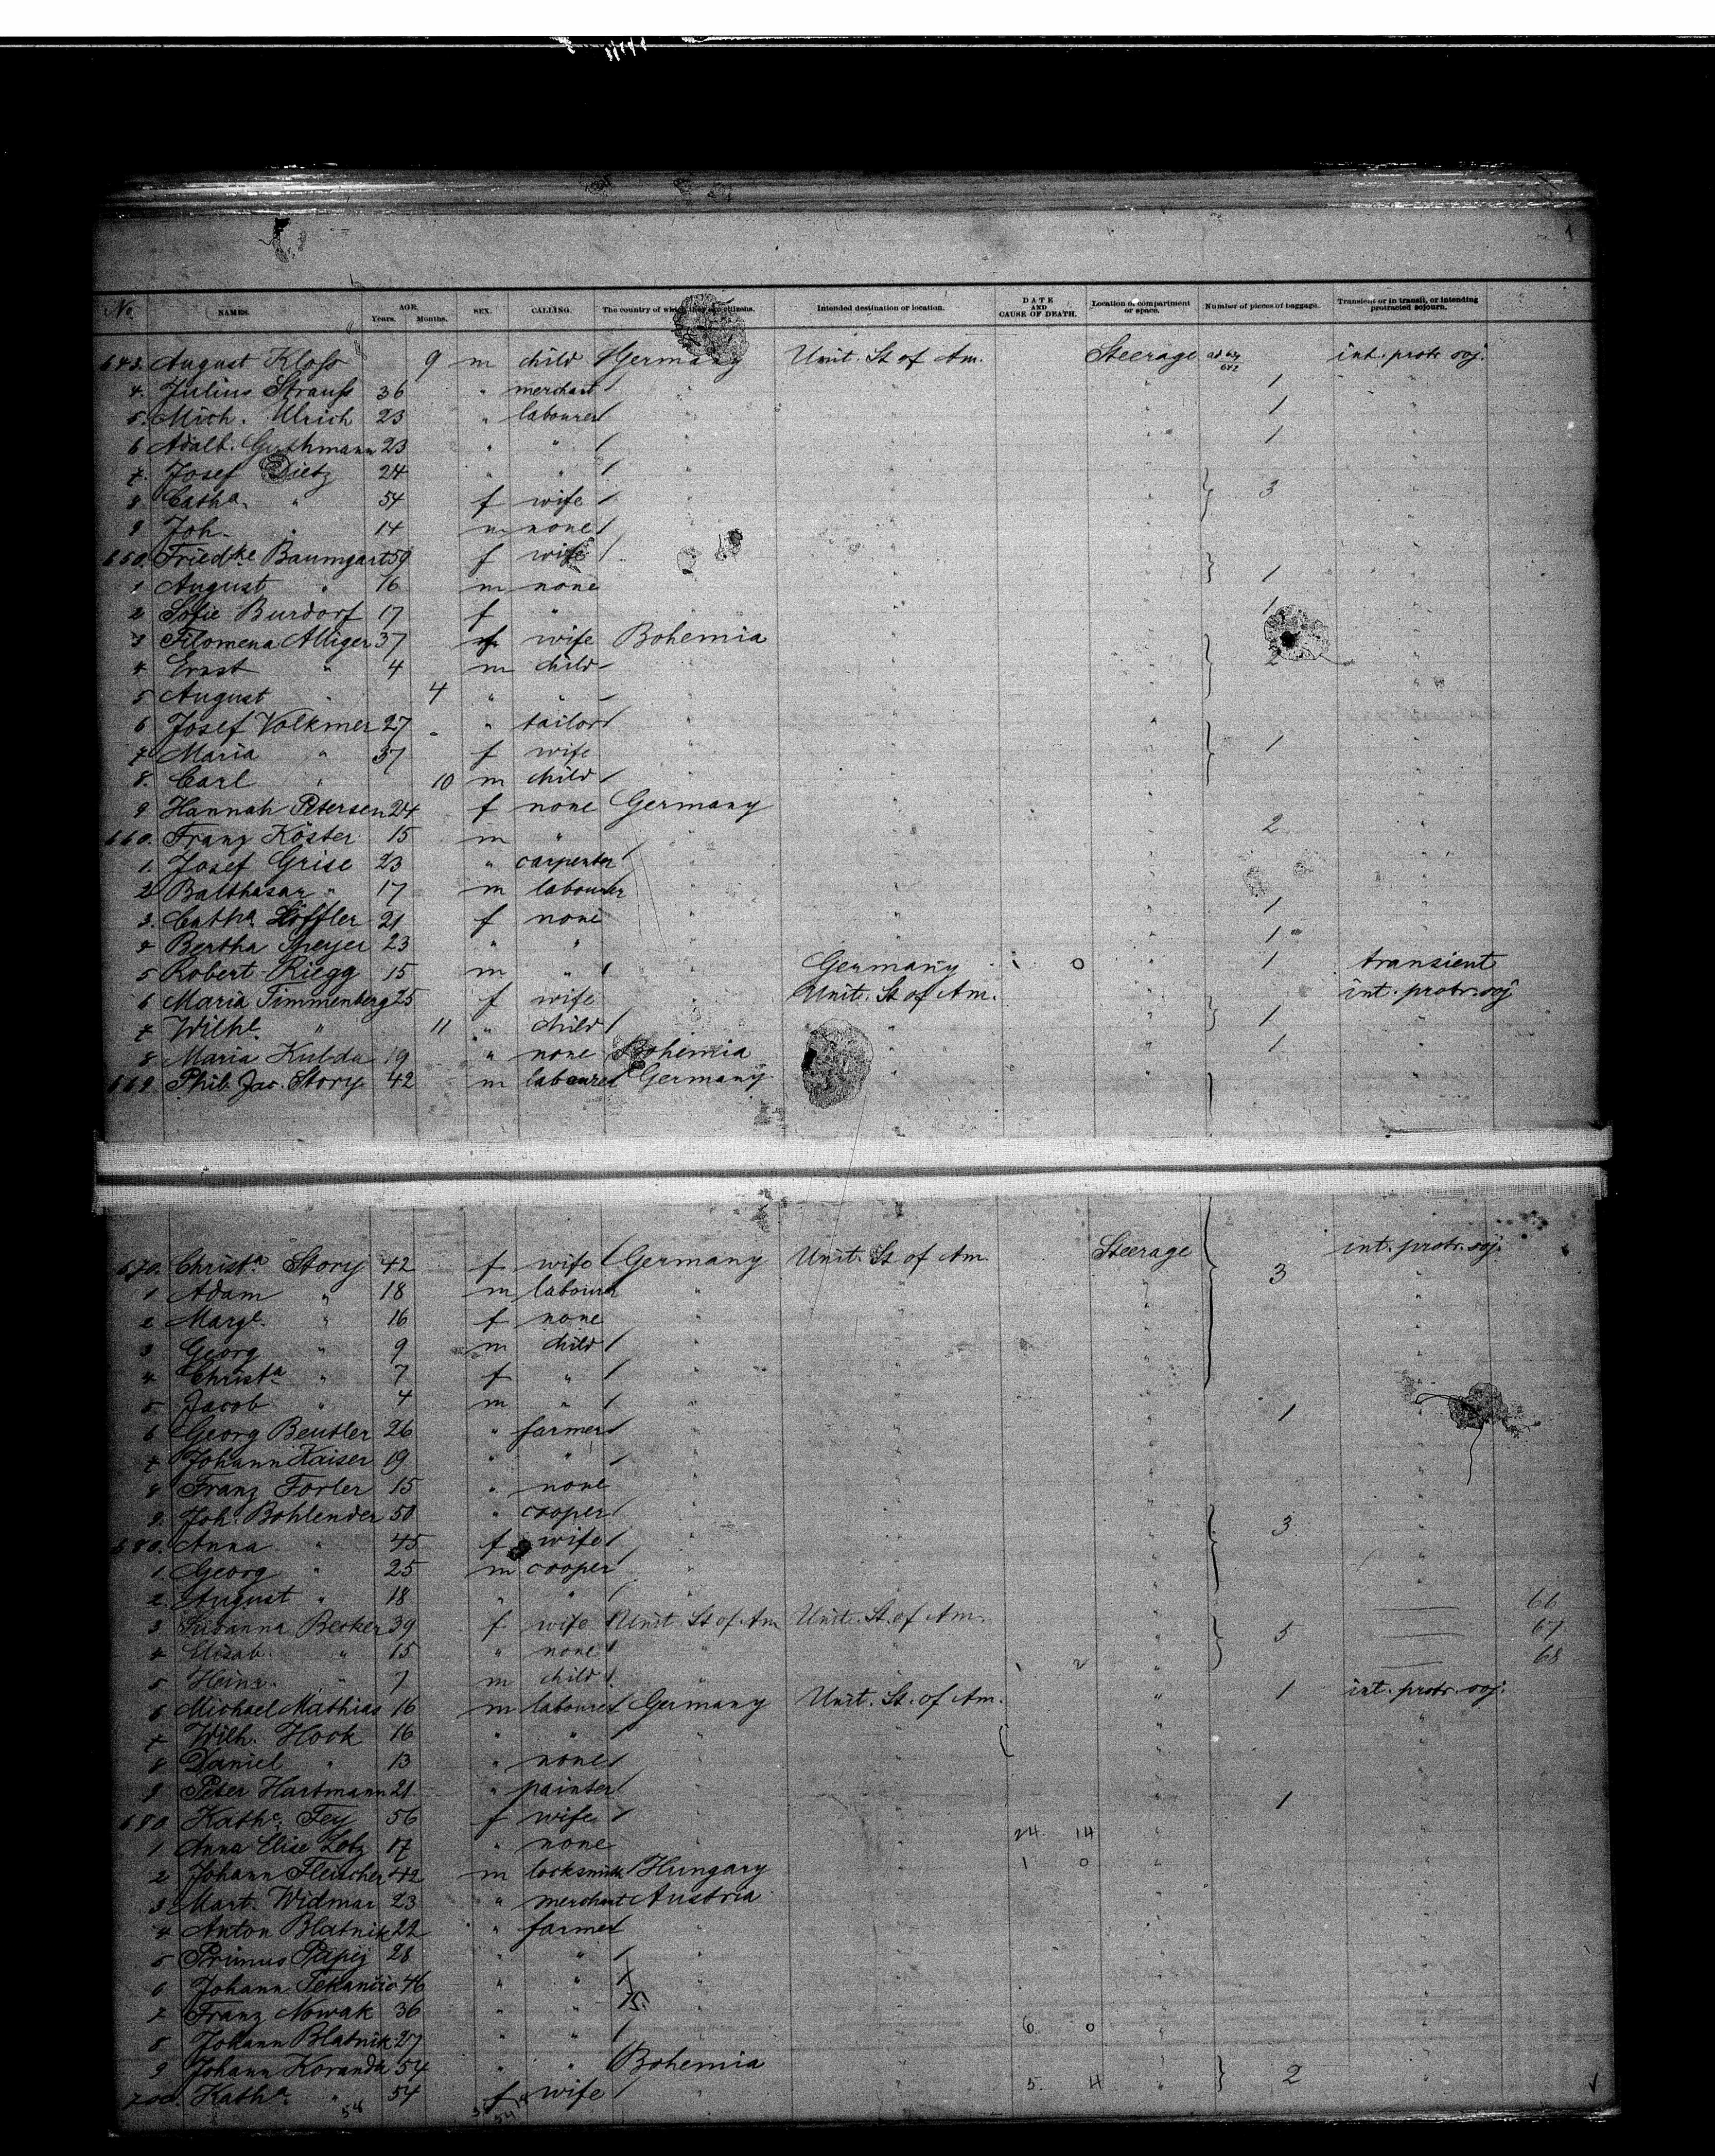 No. NAMES. AGE. Years. Months. SEX. CALLING. The country of which they are citizens. Intended destination or location. DATE AND CAUSE OF DEATH. Location of compartment or space. Number of pieces of baggage. Transient or in transit, or intending protracted sojourn.
643. August Kloss 9 m child Germany Unit. St of Am. Steerage int. protr. soj.
4. Julius Strauss 36 " merchant " " " 1 "
5. Mich. Ulrich 23 " labourer " " " 1 "
6 Adalb. Guthmann 23 " " " " " 1 "
7. Josef Dietz 24 " " " " " "
8 Catha. " 54 f wife " " " 3 "
9 Joh. " 14 m none " " " "
650. Friedke Baumgart 59 f wife " " " "
1 August " 16 m none " " " 1 "
2 Sofie Burdorf 17 f " " " " 1 "
3 Filomena Alliger 37 f wife Bohemia " " "
4 Ernst " 4 m child " " " 2 "
5 August " 4 " " " " " "
6 Josef Volkmer 27 " tailor " " " "
7 Maria " 37 f wife " " " 1 "
8. Carl " 10 m child " " " "
9 Hannah Petersen 24 f none Germany " " "
660. Franz Köster 15 m " " " " 2 "
1. Josef Grise 23 " carpenter " " " "
2 Balthasar " 17 m labourer " " " "
3. Catha. Löffler 21 f none " " " 1 "
4 Bertha Speyer 23 " " " " " 1 "
5 Robert Riegg 15 m " " Germany 0 " 1 transient
6 Maria Timmenberg 25 f wife " Unit. St of Am. " int. protr. soj
7 Wilhe. " 11 " child " " " 1 "
8 Maria Kubda 19 " none Bohemia " " 1 "
669. Phil. Jac. Story 42 m labourer Germany " " "
670. Christa. Story 42 f wife Germany Unit. St of Am Steerage 3 int. protr. soj.
1 Adam " 18 m labourer " " " "
2 Marge. " 16 f none " " " "
3 Georg " 9 m child " " " "
4 Christa " 7 f " " " " "
5 Jacob " 4 m " " " " "
6 Georg Beutler 26 " farmer " " " 1 "
7 Johann Kaiser 19 " " " " " "
8 Franz Forler 15 " none " " " "
9. Joh. Bohlender 50 " cooper " " " "
680. Anna " 45 f wife " " " 3 "
1. Georg " 25 m cooper " " " "
2 August " 18 " " " " " "
3. Susanna Becker 39 f wife Unit. St of Am Unit. St. of Am. " 66
4 Elisab. " 15 " none " " " 5 67
5 Heinr. " 7 m child " " 1 2 " 68
6 Michael Mathias 16 m labourer Germany Unit. St. of Am. " 1 int. protr. soj.
7 Wilh. Hook 16 " " " " " "
8 Daniel " 13 " none " " " "
9 Peter Hartmann 21 " painter " " " "
690 Kathe. Fey 56 f wife " " " 1 "
1 Anna Elise Lotz 17 " none " " 24 14 " "
2 Johann Fleischer 42 m locksmith Hungary " 1 0 " "
3 Mart. Widmar 23 " merchant Austria " " "
4 Anton Blatnik 22 " farmer " " " "
5 Primus Papez 28 " " " " " "
6 Johann Tekancic 46 " " " " " "
7 Franz Nowak 36 " " " " " "
8 Johann Blatnik 27 " " " " 6 0 " "
9 Johann Koranda 54 " " Bohemia " " "
700. Katha. " 54 f wife " " 5. 4 " 2 "